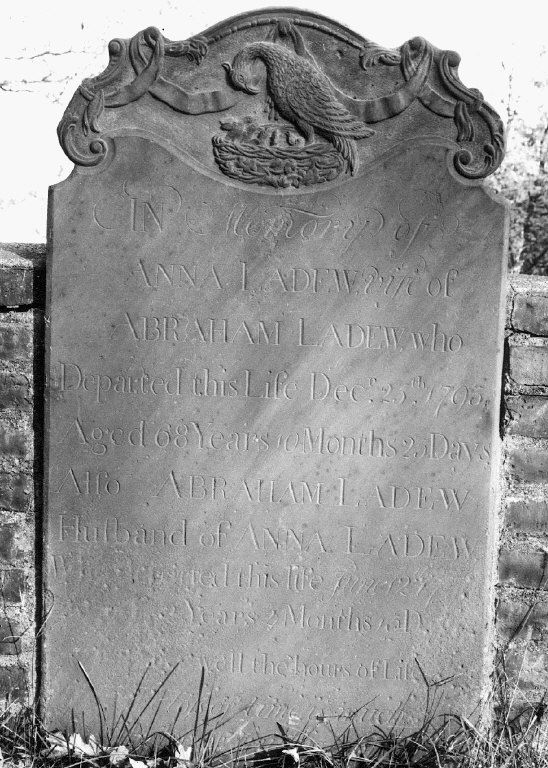 IN Memory of
ANNA LADEW, wife of
ABRAHAM LADEW, who
Departed this Life Decr. 25th. 1793.
Aged 68 Years 10 Months 25 Days
Alſo ABRAHAM LADEW
Huſband of ANNA LADEW
this life
Years 2 Months
the hours of Life